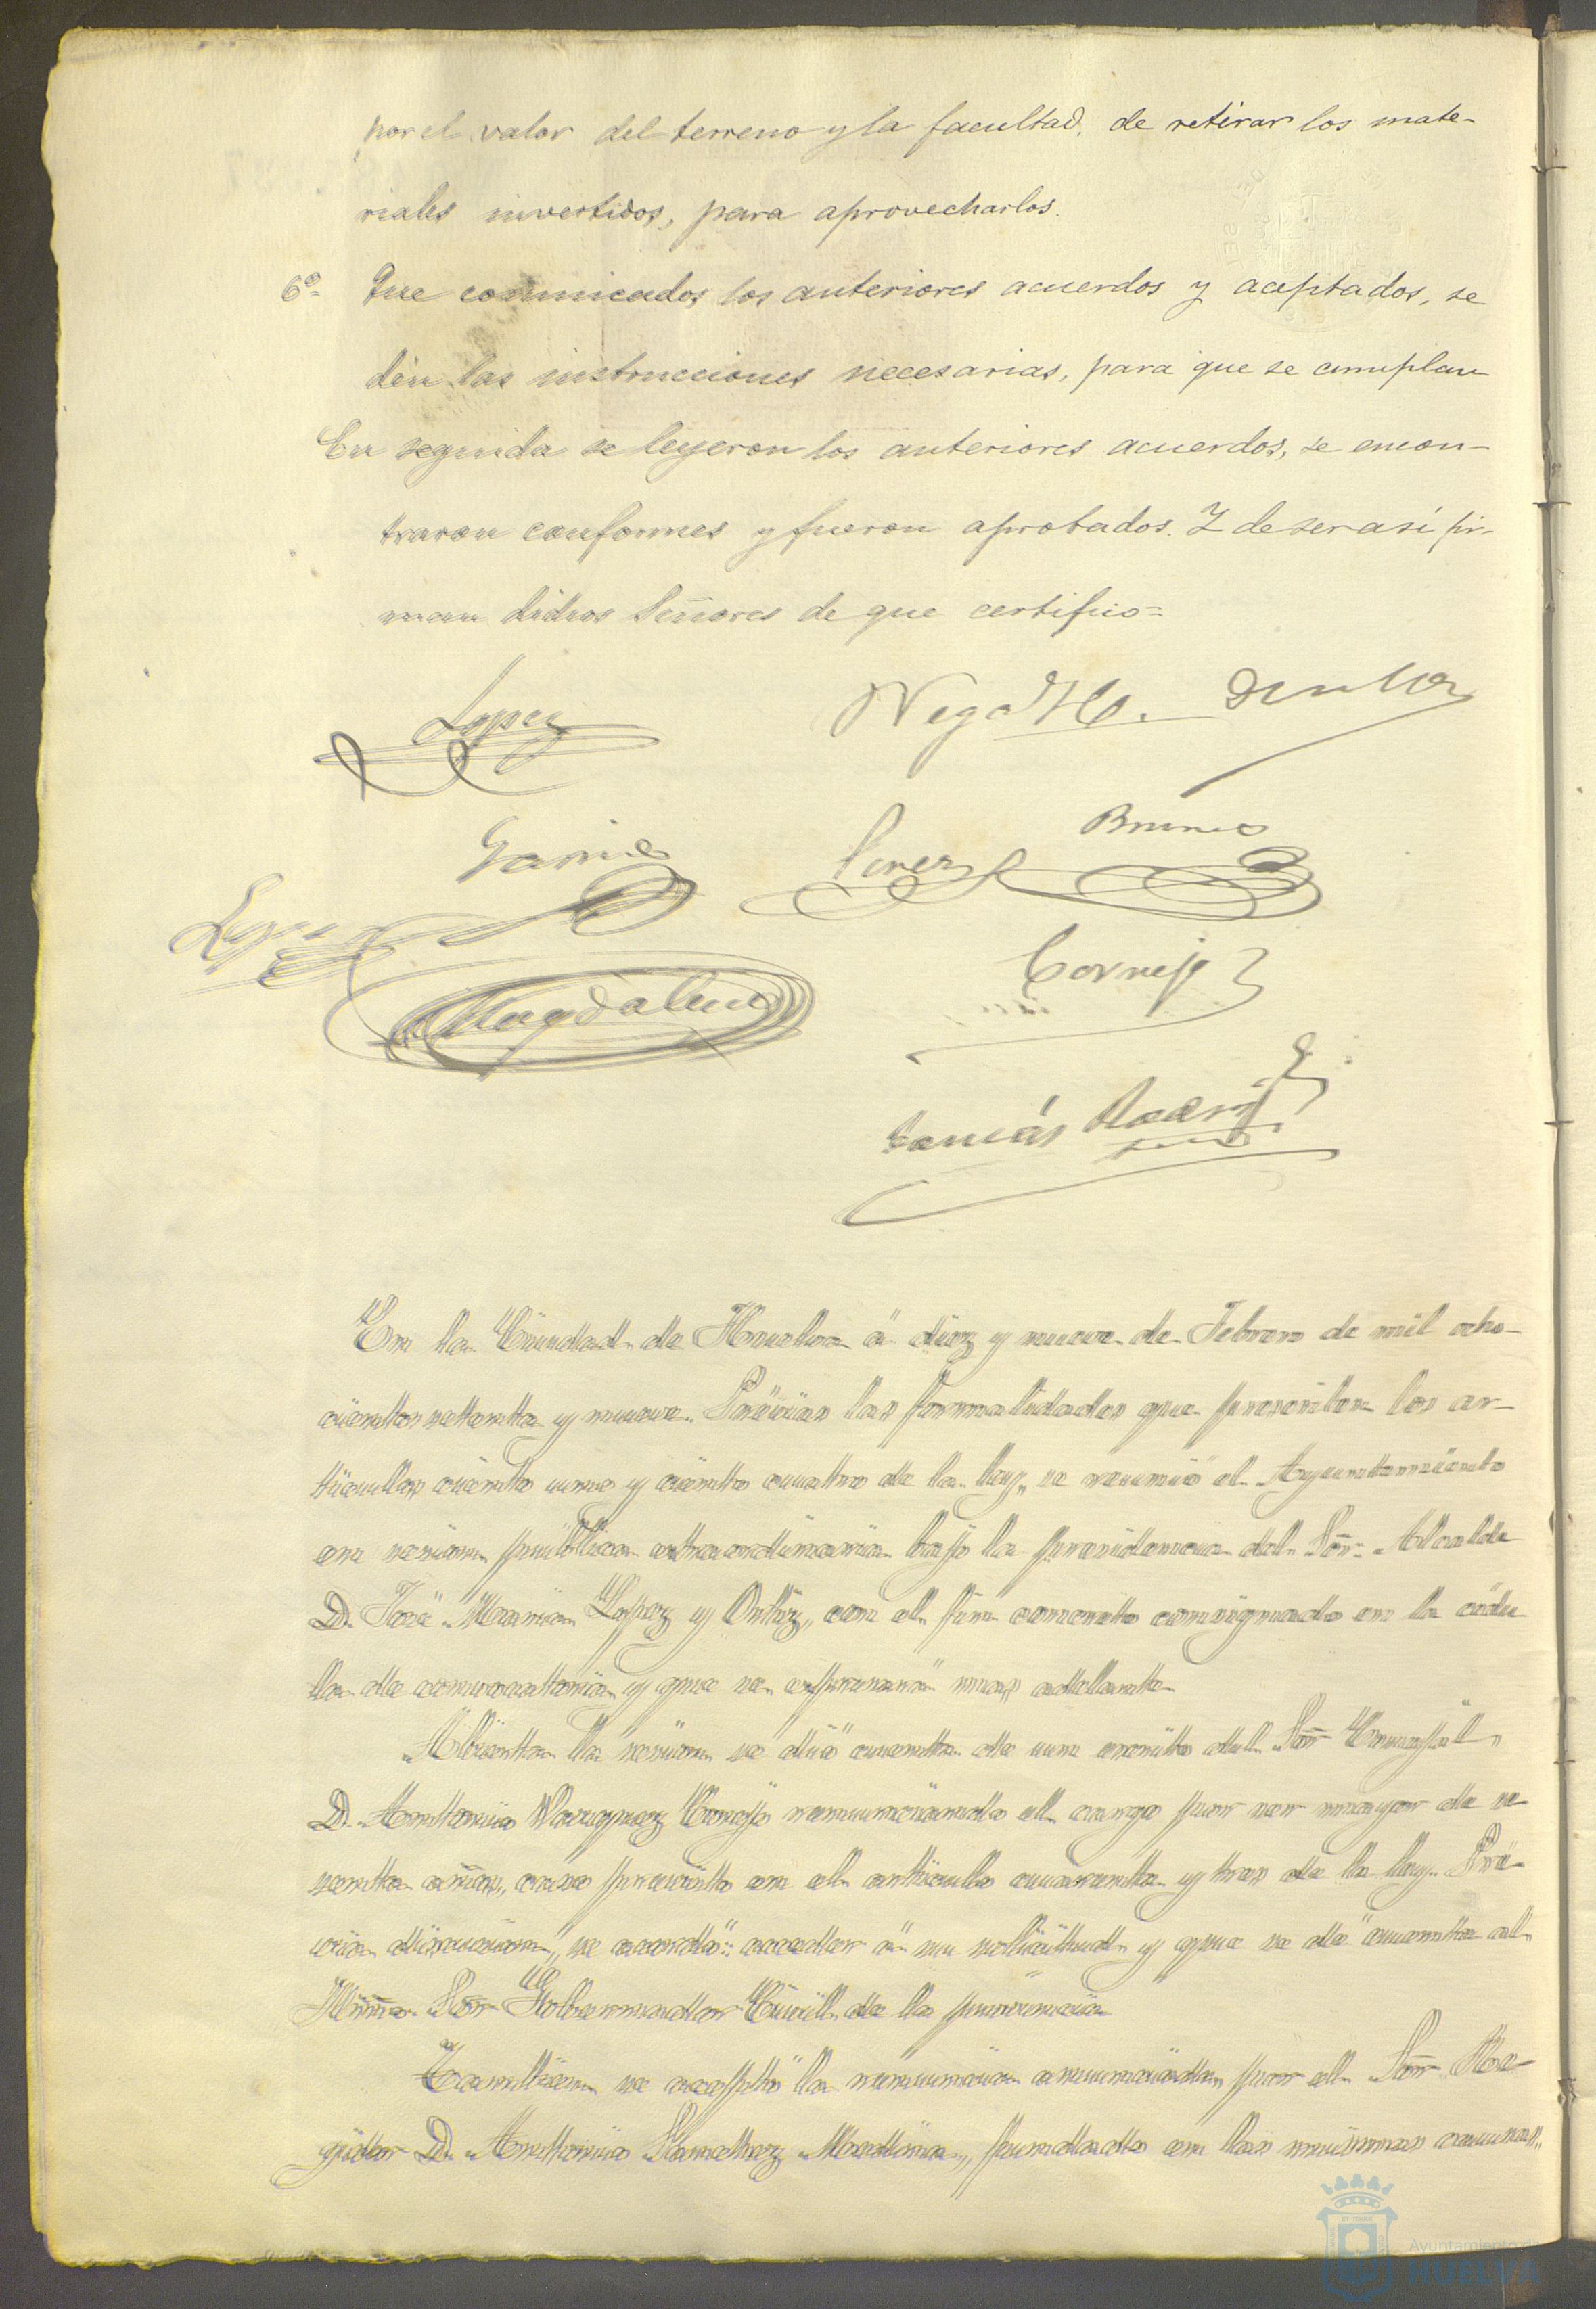 por el valor del terreno y la facultad, de retirar los mate-
riales invertidos, para aprovecharlos.
6º Que comunicados los anteriores acuerdos y aceptados, se
den las instrucciones necesarias, para que se cumplan
En seguida se leyeron los anteriores acuerdos, se encon-
traron conformes y fueron aprobados. Y de ser asi fir-
man dichos Señores de que certifico=
Lopez
Garcia
Perez
Bruno
Lopez
Cornejo
Magdalena
Tomás Rodri
guez
En la Ciudad de Huelva á diez y nueve de Febrero de mil ocho-
cientos setenta y nueve. Prévias las formalidades que prescriben los ar-
tículos ciento uno y ciento cuatro de la ley, se reunió el Ayuntamiento
en sesion pública extraordinaria bajo la presidencia del Sor. Alcalde
D. José Maria Lopez y Ortiz, con el fin concreto consignado en la cédu
la de convocatoria y que se espresará mas adelante
Abierta la sesion se dió cuenta de un escrito del Sor Concejal
D. Antonio Vazquez Cornejo renunciando el cargo por ser mayor de se
senta años, caso previsto en el articulo cuarenta y tres de la ley. Pré
via discusion, se acordó: acceder á su solicitud y que se dé cuenta al
Ilmo. Sor Gobernador Civil de la provincia
Tambien se aceptó la renuncia anunciada por el Sor Re-
gidor D. Antonio Sanchez Medina, fundado en las mismas causas,
Ayuntamiento
HUELVA